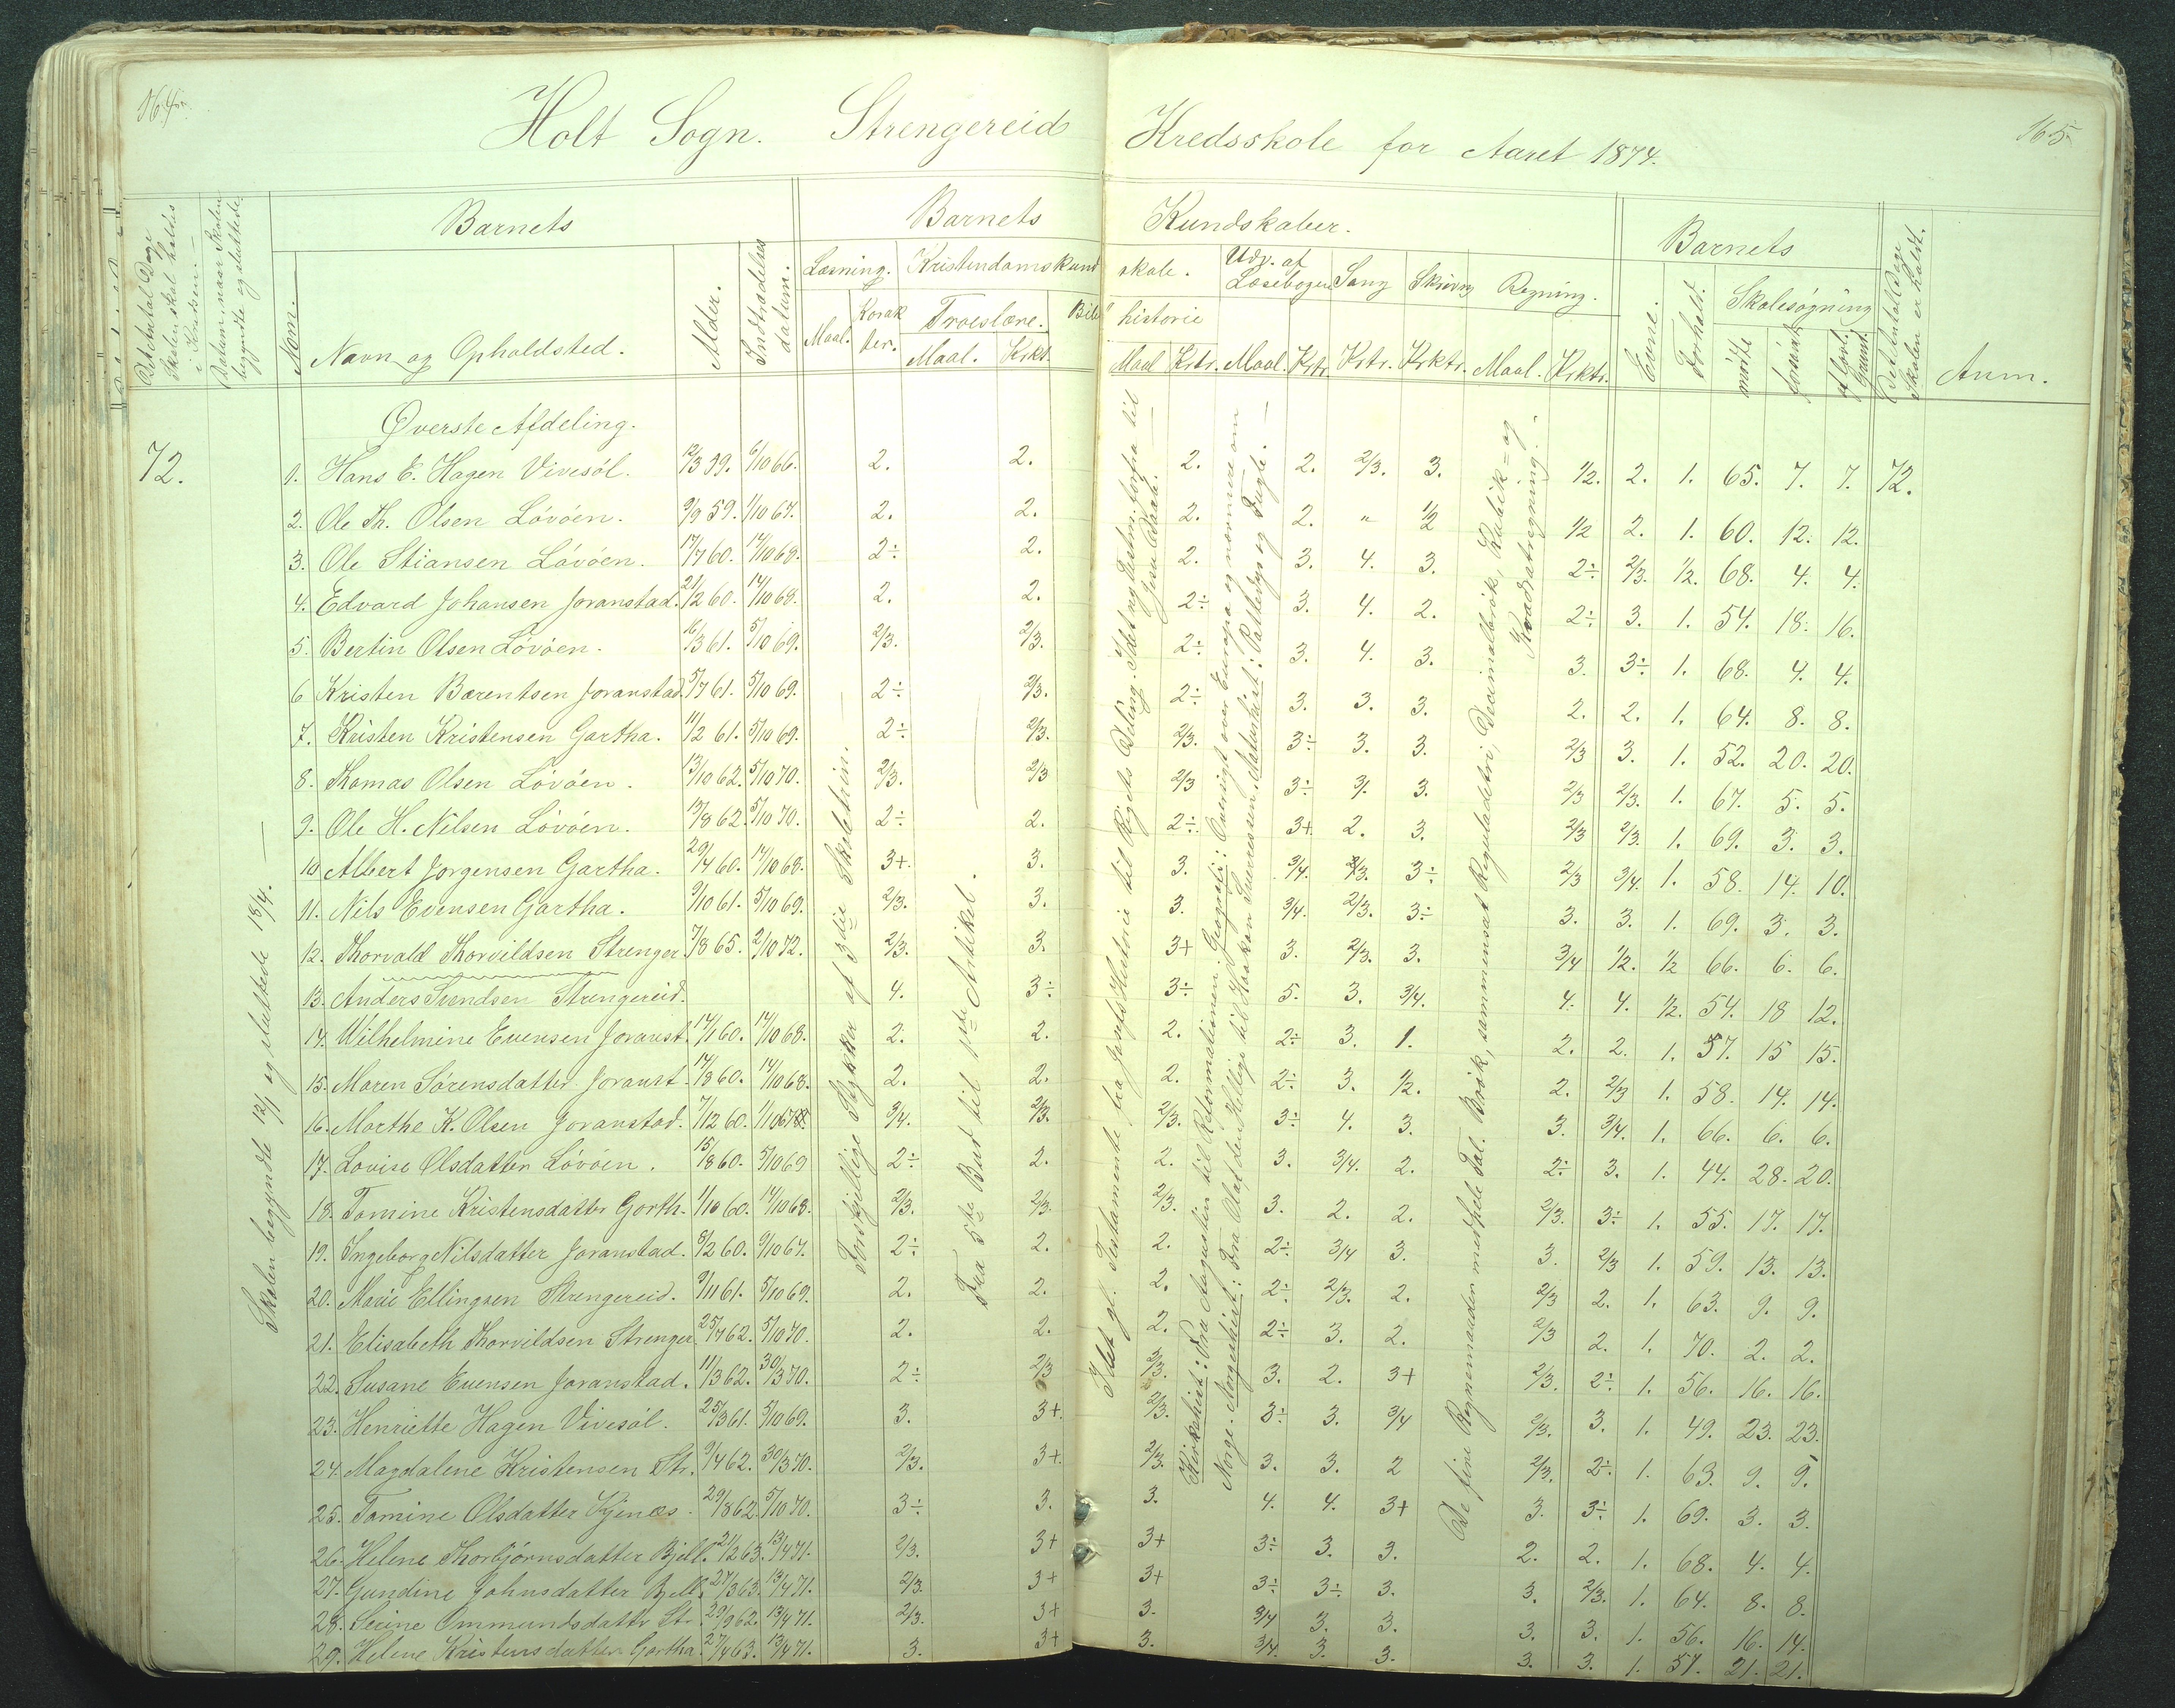 164.
165.
Holt Sogn. Strengereid Kredsskole for Aaret 1874.
Det Antal Dage Skolen skal holdes i Kredsen.
Datum, naar Skolen begyndte og sluttede.
Barnets
Num.
Navn og Opholdsted.
Alder.
Indtrædelses datum.
Barnets Kundskaber.
Læsning.
Maal.
Karakter.
Kristendomskundskab.
Troeslære.
Maal.
Bibelhistorie
Maal Krkt.
Udv. af Læsebogen
Maal. Krktr.
Sang
Krktr.
Skrivng
Krktr.
Regning.
Maal. Krktr.
Barnets
Evne.
Forhold.
Skolesøgning
mødte
forsømt
Det Antal Dage Skolen er holdt.
Anm.
Øverste Afdeling.
72.
1. Hans E. Hagen Vivesöl. 12/3 59. 6/10 66. 2. 2. 2. 2. 2/3. 3. 1/2. 2. 1. 65. 7. 7. 72.
2. Ole Th. Olsen Lövöen. 9/9 59. 1/10 67. 2. 2. 2. 2. " 1/2 1/2 2. 1. 60. 12. 12.
3. Ole Stiansen Lövöen. 17/7 60. 14/10 68. 2÷ 2. 2. 3. 4. 3. 2÷ 2/3. 1/2. 68. 4. 4.
4. Edvard Johansen Joranstad. 21/2 60. 14/10 68. 2. 2. 2÷ 3. 4. 2. 2÷ 3. 1. 54. 18. 16.
5. Bertin Olsen Lövöen. 16/3 61. 5/10 69. 2/3. 2/3. 2÷ 3. 4. 3. 3. 3÷ 1. 68. 4. 4.
6 Kristen Barentsen Joranstad. 5/7 61. 5/10 69. 2÷ 2/3. 2÷ 3. 3. 3. 2. 2. 1. 64. 8. 8.
7. Kristen Kristensen Gartha. 11/2 61. 5/10 69. 2÷ 2/3. 2/3. 3÷ 3. 3. 2/3 3. 1. 52. 20. 20.
8. Thomas Olsen Lövöen. 13/10 62. 5/10 70. 2/3. 2/3 2/3 3÷ 3. 3. 2/3 2/3. 1. 67. 5. 5.
9. Ole H. Nilsen Lövöen. 19/8 62. 5/10 70. 2÷ 2. 2÷ 3+ 2. 3. 2/3 2/3. 1. 69. 3. 3.
10 Albert Jorgensen Gartha. 29/4 60. 14/10 68. 3+. 3. 3. 3/4. 2/3. 3÷ 2/3 3/4. 1. 58. 14. 10.
11. Nils Evensen Gartha. 9/10 61. 5/10 69. 2/3. 3. 3. 3/4. 2/3. 3÷ 3. 3. 1. 69. 3. 3.
12. Thorvald Thorvildsen Strenger. 7/8 65. 2/10 72. 2/3. 3. 3+ 3. 2/3. 3. 3/4 1/2. 1/2 66. 6. 6.
13. Anders Svendsen Strengereid. 4. 3÷ 3÷ 5. 3. 3/4. 4. 4. 1/2. 54. 18 12.
14. Wilhelmine Evensen Joranst. 14/1 60. 14/10 68. 2. 2. 2. 2÷ 3. 1. 2. 2. 1. 57. 15 15.
15. Maren Sörensdatter Joranst. 14/8 60. 14/10 68. 2. 2. 2. 2÷ 3. 1/2. 2. 2/3 1. 58. 14. 14.
16. Marthe K. Olsen Joranstad. 7/12 60. 1/10 67 3/4. 2/3. 2/3. 3÷ 4. 3. 3. 3/4. 1. 66. 6. 6.
17. Lovise Olsdatter Lövöen. 15/8 60. 5/10 69 2÷ 2. 2. 3. 3/4. 2. 2÷ 3. 1. 44. 28. 20.
18. Tomine Kristensdatter Gorth. 1/10 60. 14/10 68. 2/3. 2/3. 2/3. 3. 2. 2. 2/3. 3÷ 1. 55. 17. 17.
19. Ingeborg Nilsdatter Joranstad. 8/2 60. 9/10 67. 2÷ 2. 2. 2÷ 3/4 3. 3. 2/3 1. 59. 13. 13.
20. Marie Ellingsen Strengereid. 9/11 61. 5/10 69. 2. 2. 2. 2÷ 2/3. 2. 2/3 2. 1. 63. 9. 9.
21. Elisabeth Thorvildsen Strenger. 25/7 62. 5/10 70. 2. 2. 2. 2÷ 3. 2. 2/3 2. 1. 70. 2. 2.
22. Susane Evensen Joranstad. 11/3 62. 30/3 70. 2÷ 2/3 2/3. 3. 2. 3+ 2/3. 2÷ 1. 56. 16. 16.
23. Henriette Hagen Vivesöl. 25/3 61. 5/10 69. 3. 3+. 2/3. 3÷ 3. 3/4 2/3. 3. 1. 49. 23. 23.
24. Magdalene Kristensen Str. 9/4 62. 30/3 70. 2/3. 3+. 2/3. 3. 3. 2 2/3. 2÷ 1. 63. 9. 9.
25. Tomine Olsdatter Kjenæs. 29/8 62. 5/10 70. 3÷ 3. 3. 4. 4. 3+ 3. 3÷ 1. 69. 3. 3.
26. Helene Thorbjörnsdatter Bjell. 21/2 63. 13/4 71. 2/3. 3+ 3+ 3÷ 3. 3. 2. 2. 1. 68. 4. 4.
27. Gundine Johnsdatter Bjell. 27/3 63. 13/4 71. 2/3. 3+ 3+ 3÷ 3÷ 3. 3. 2/3. 1. 64. 8. 8.
28. Serine Ommundsdatter St. 29/9 62. 13/4 71. 2/3. 3+ 3. 3/4 3. 3. 3. 3. 1. 56. 16. 14.
29. Helene Kristensdatter Gartha. 27/4 63. 13/4 71. 3. 3+ 3. 3/4. 3. 3. 3. 3. 1. 51. 21. 21.
Skolen begyndte 12/1 og sluttede 18/4.
Forskjellige Stykker af 3die Skoletrin.
Fra 5te Bud til 1ste Artikel.
I det gl. Testamente fra Josefs Historie til Rigets Deling. I det ny Testm. forfra til Jesu Daab.
Kirkehist: Fra Augustin til Reformationen. Geografi: Oversigt over Europa og nærmere om
Norge. Norgeshist: Fra Olaf den Hellige til Haakon Sverressen. Naturhist: Pattedyr og Fugle.
De fire Regnemaader med hele Tal. Brök, sammensat Reguladetri, Decimalbrök, Kubik- og
Kvadratregning.